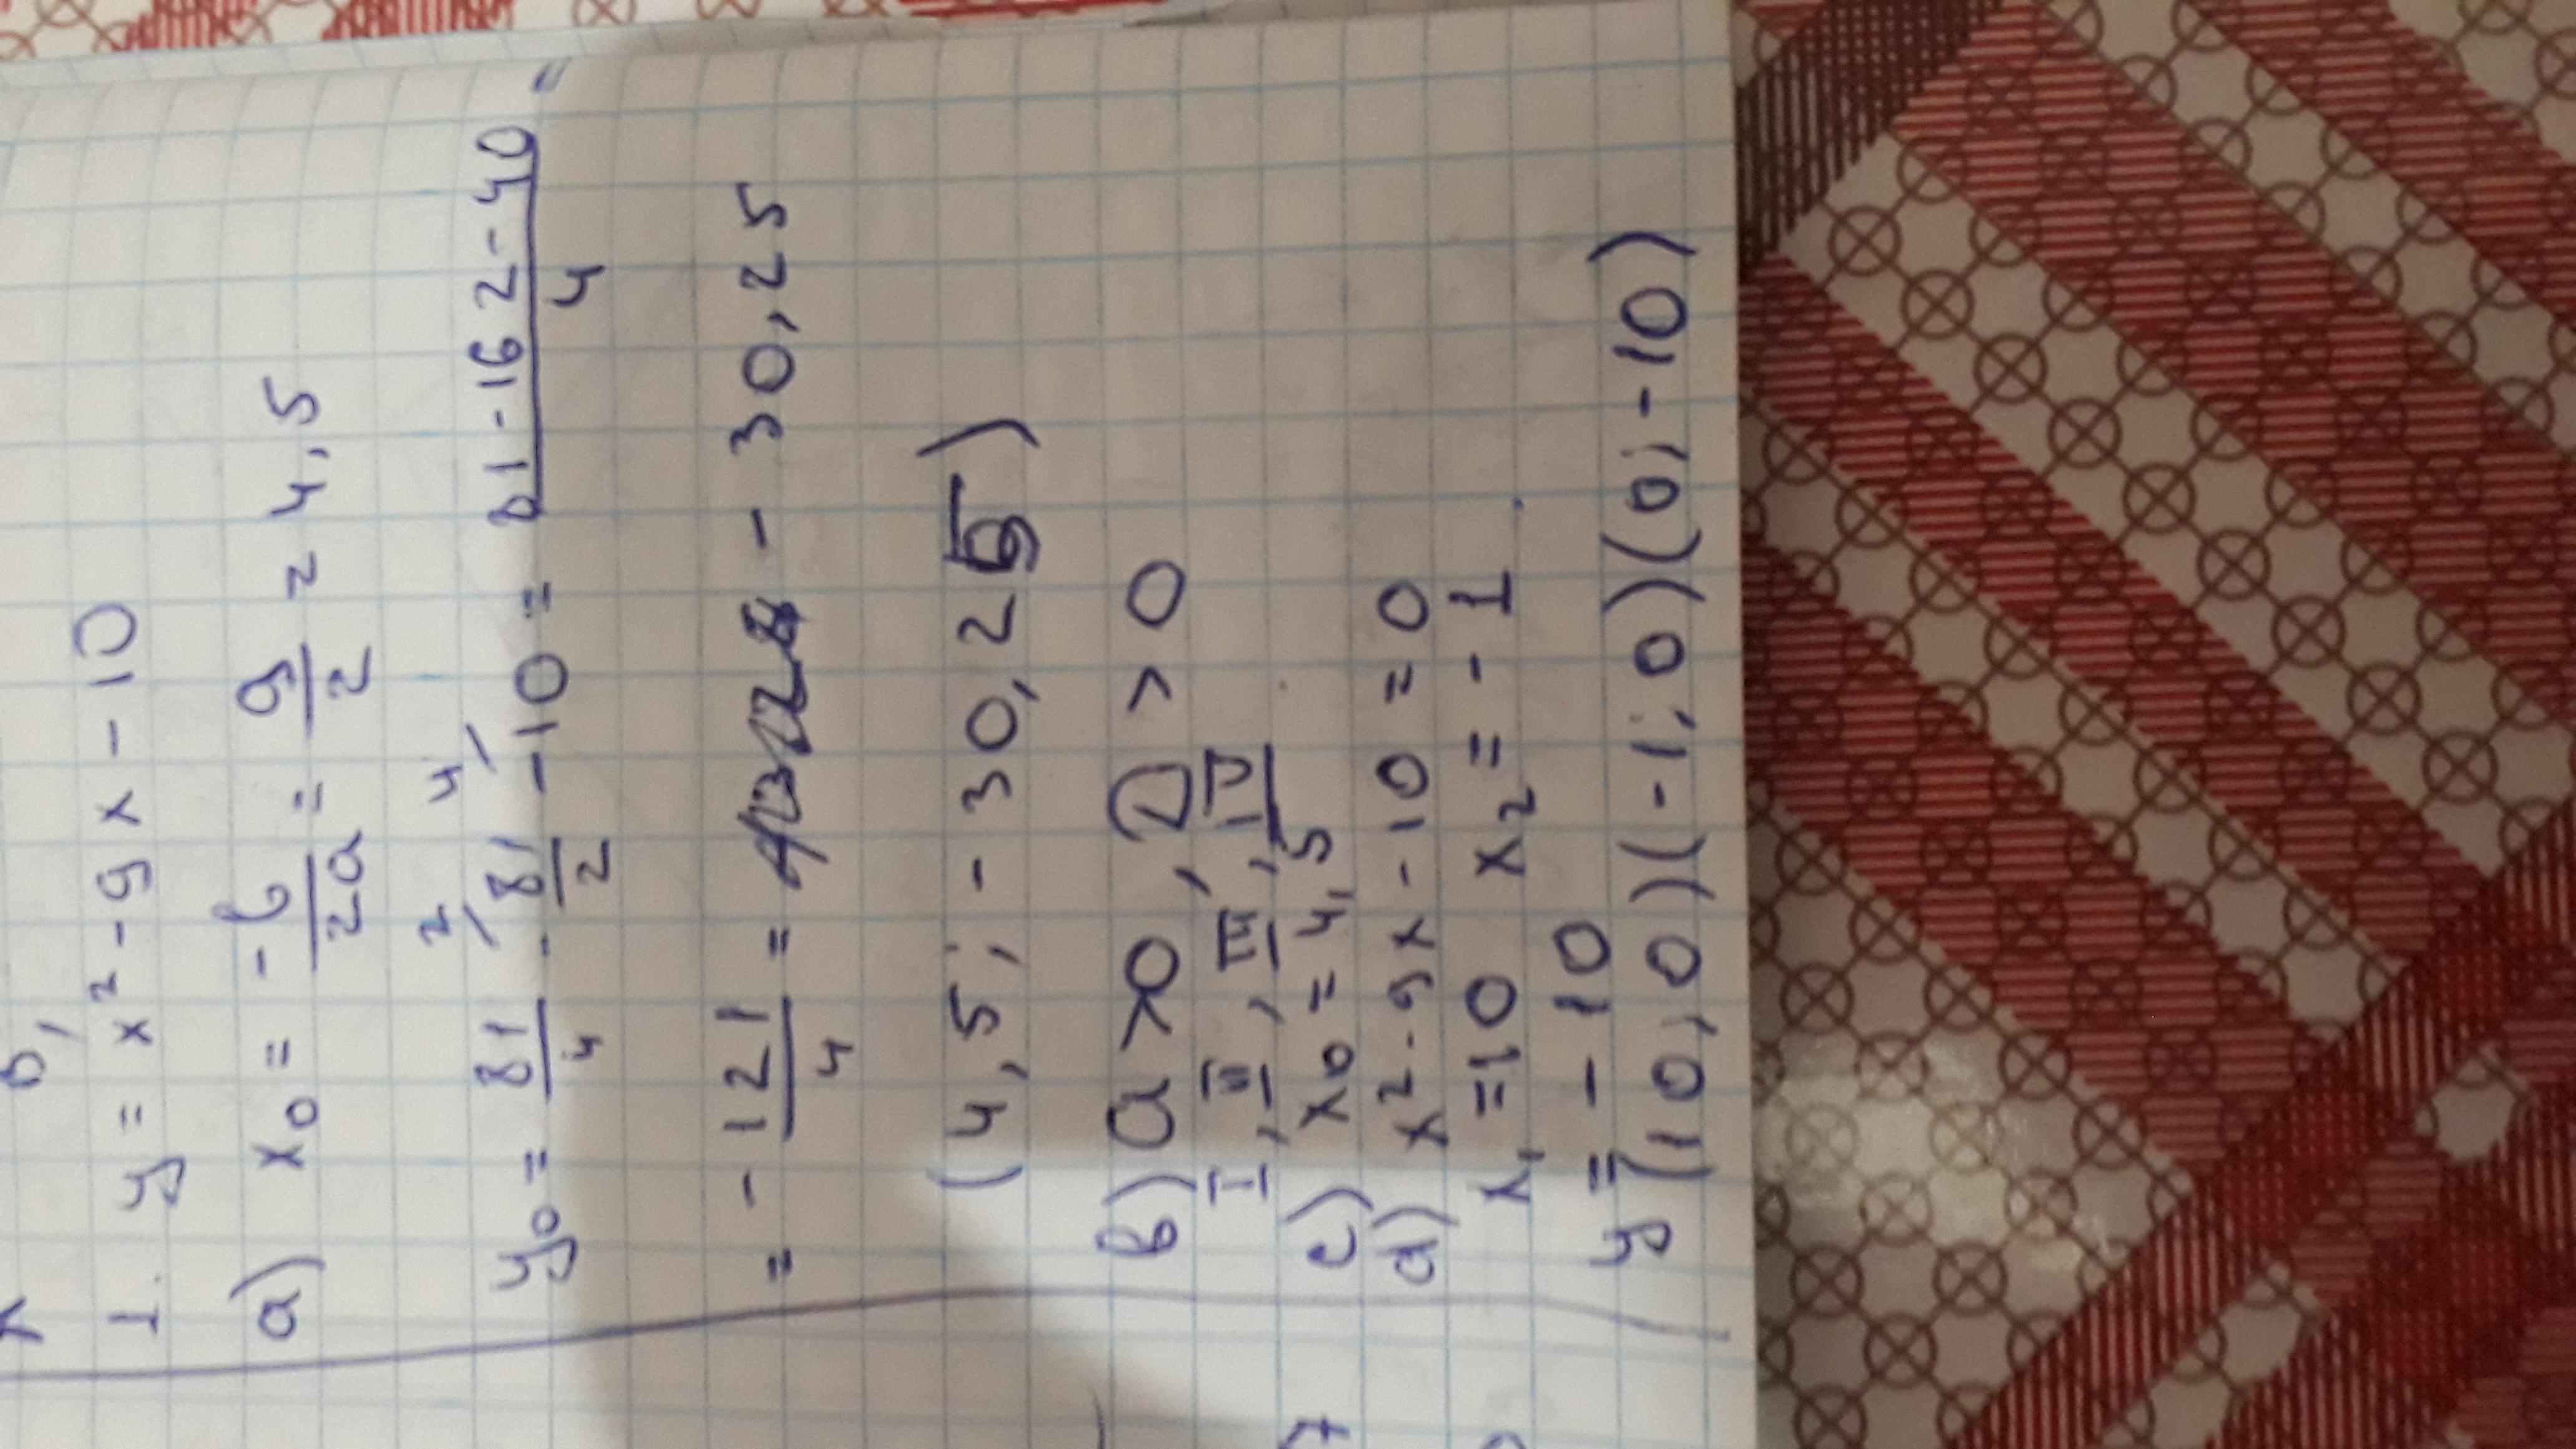 1. y = x² - 9x - 10
a) x₀ = -b/2a = 9/2 = 4,5
y₀ = 81/4 - 81/2 - 10 = 81 - 162 - 40/4 =
= - 121/4 = - 30,25
(4,5; - 30,25)
b) a > 0, D > 0
I, II, III, IV
c) x₀ = 4,5
d) x² - 9x - 10 = 0
x₁ = 10 x₂ = - 1
y = - 10
(10; 0) (-1; 0) (0; -10)
7